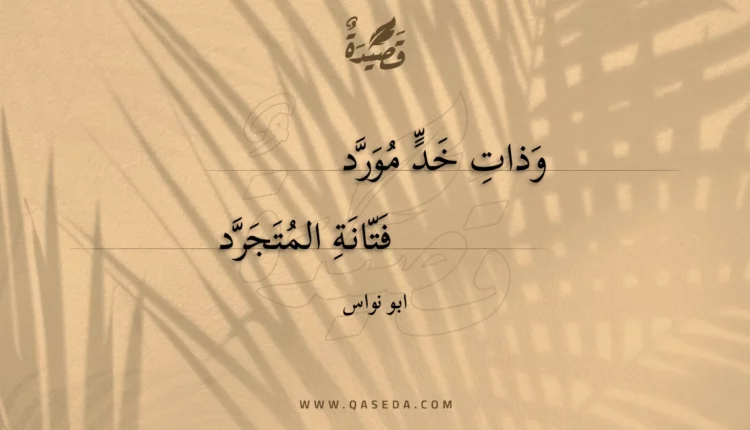 قَصِيدَةٌ
وَذاتِ خَدٍّ مُوَرَّد
فَتّانَةِ المُتَجَرَّد
ابو نواس
WWW.QASEDA.COM